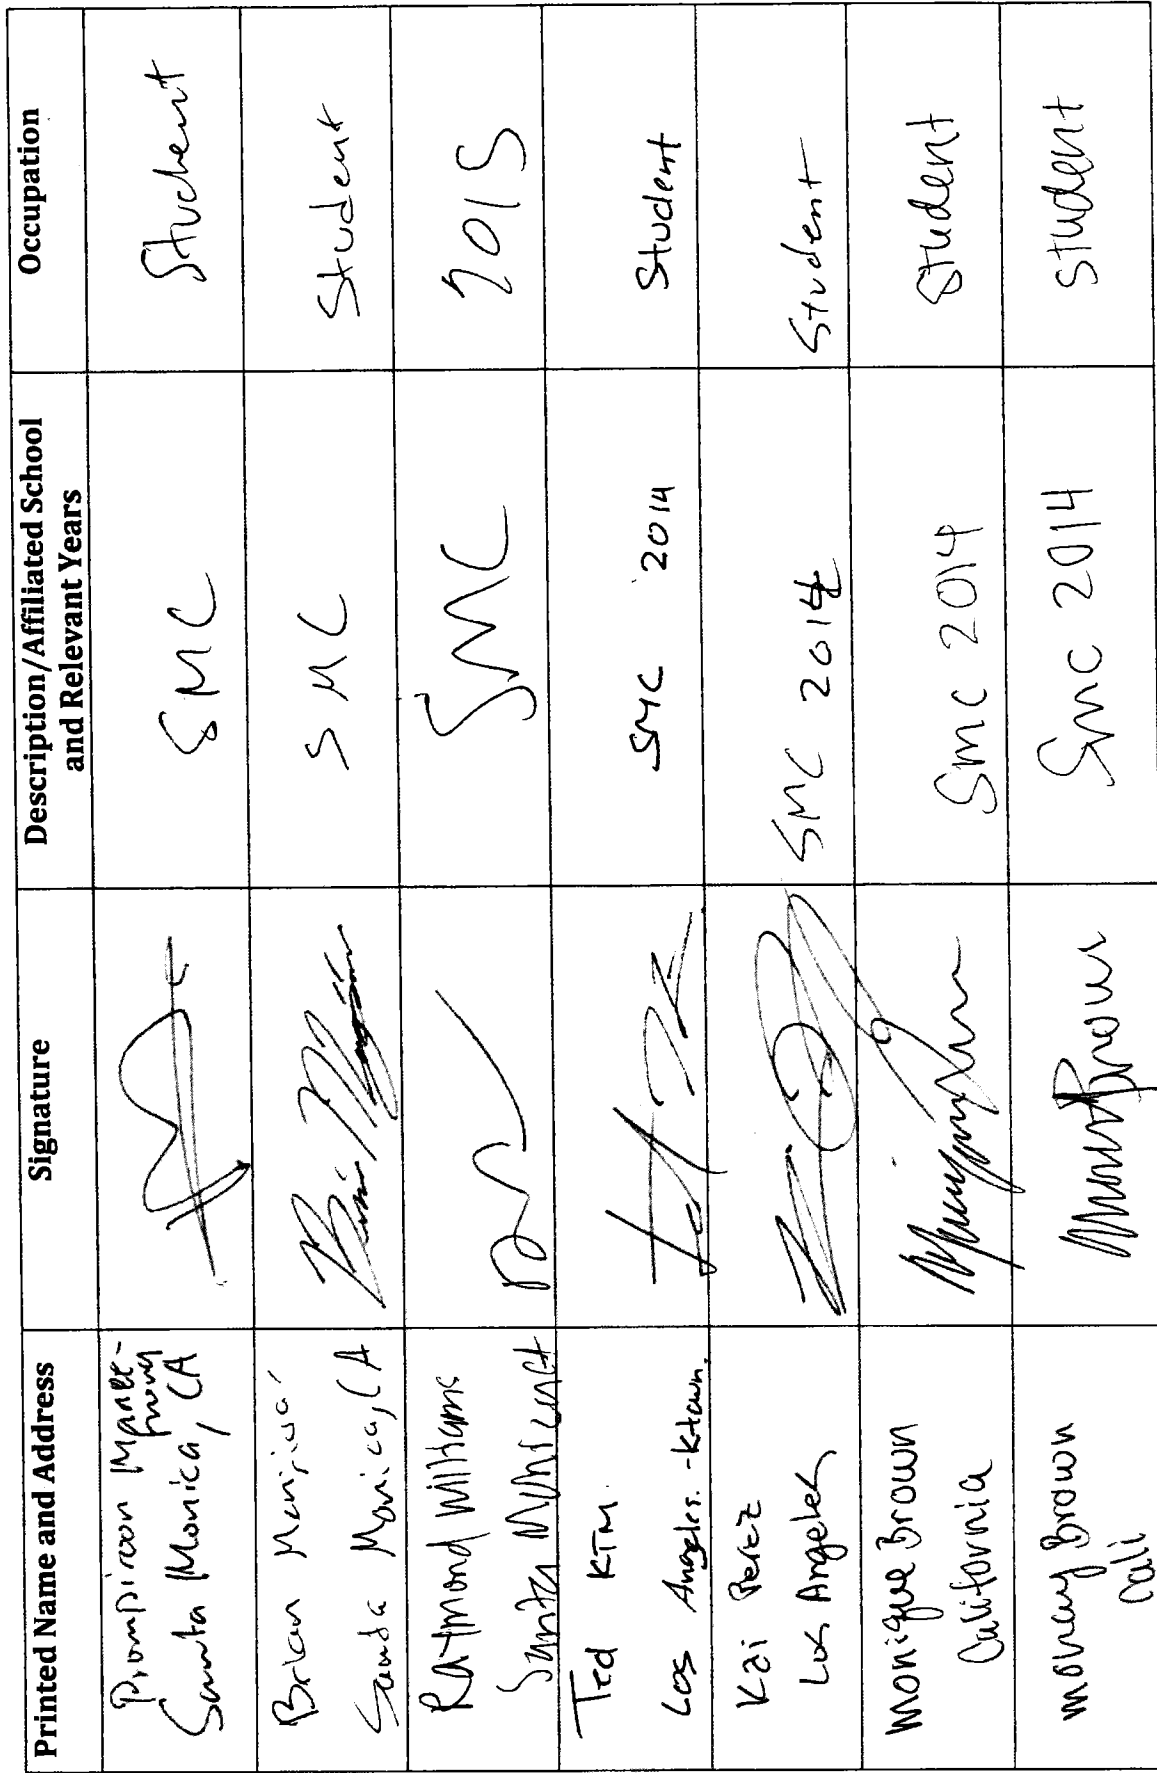 Printed Name and Address
Signature
Description/Affiliated School
and Relevant Years
Occupation
Santa Monica, CA
SMC
Student
Brian
Monica, CA
SMC
Student
Raymond Williams
Santa
SMC
2015
Ted Kim
Los Angeles. - Ktown.
SMC 2014
Student
Kai Perez
Los Angeles
SMC 2014
Student
Monique Brown
California
Smc 2014
Student
Brown
Cali
Smc 2014
student